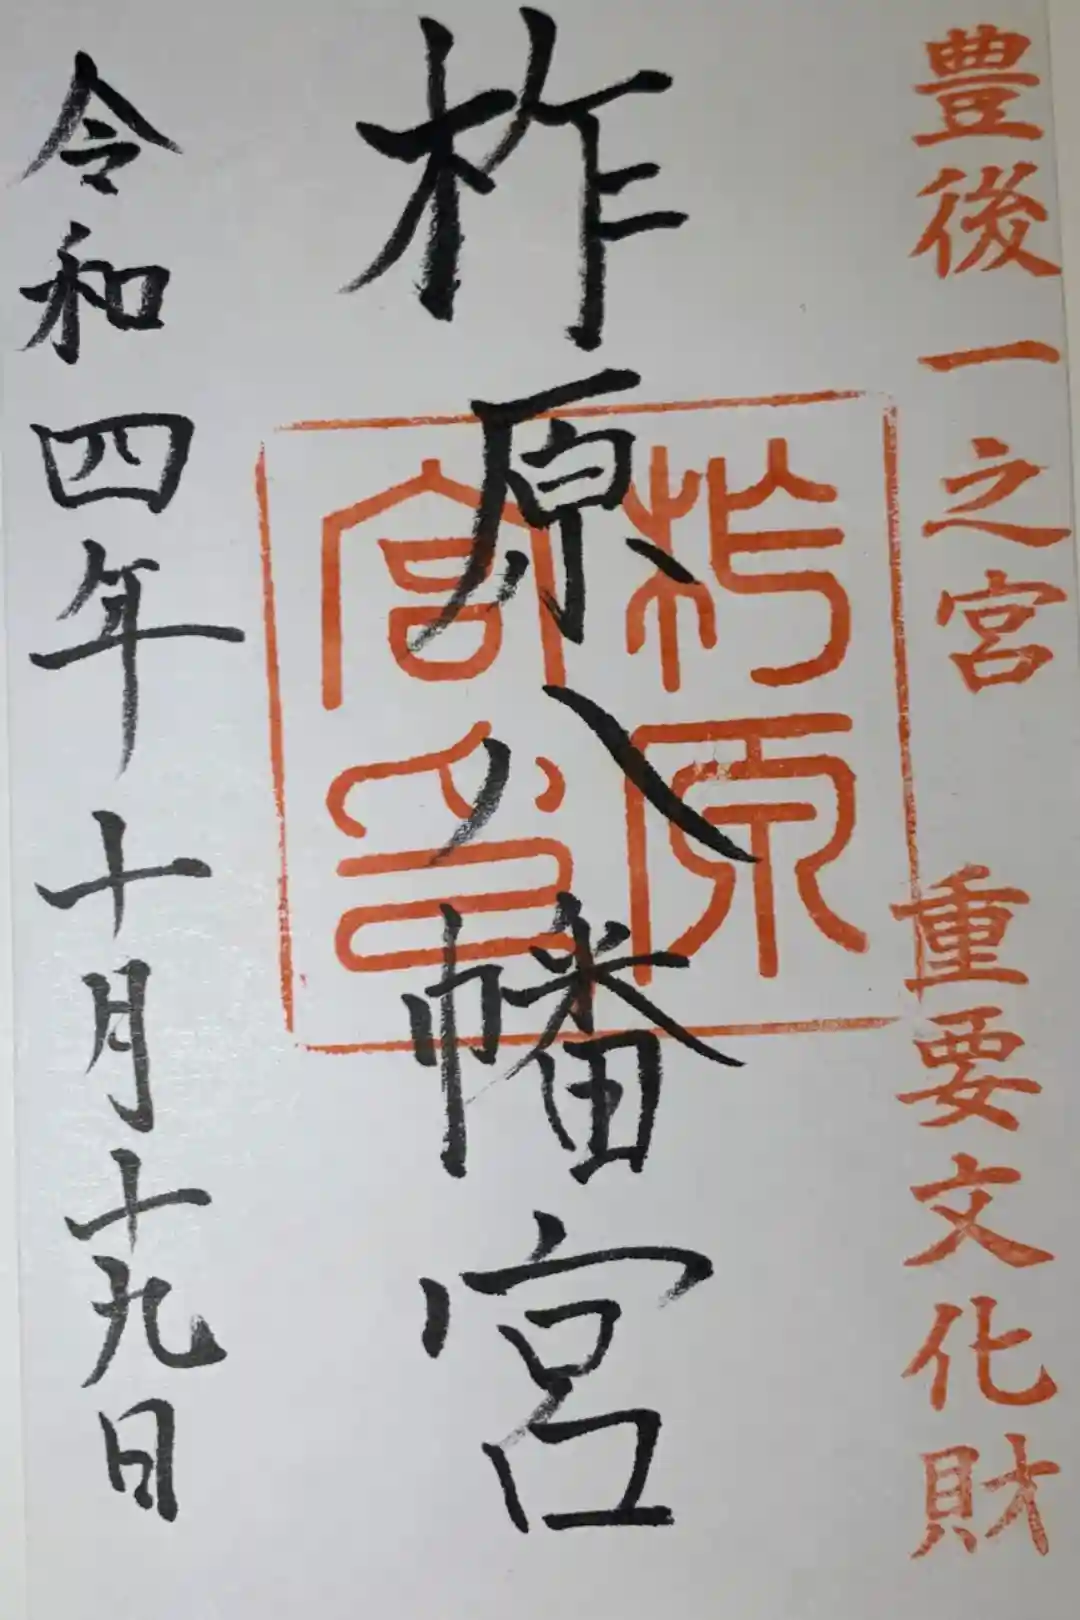 豊後一之宮 重要文化財
柞原八幡宮
柞原
宮印
令和四年十月十九日